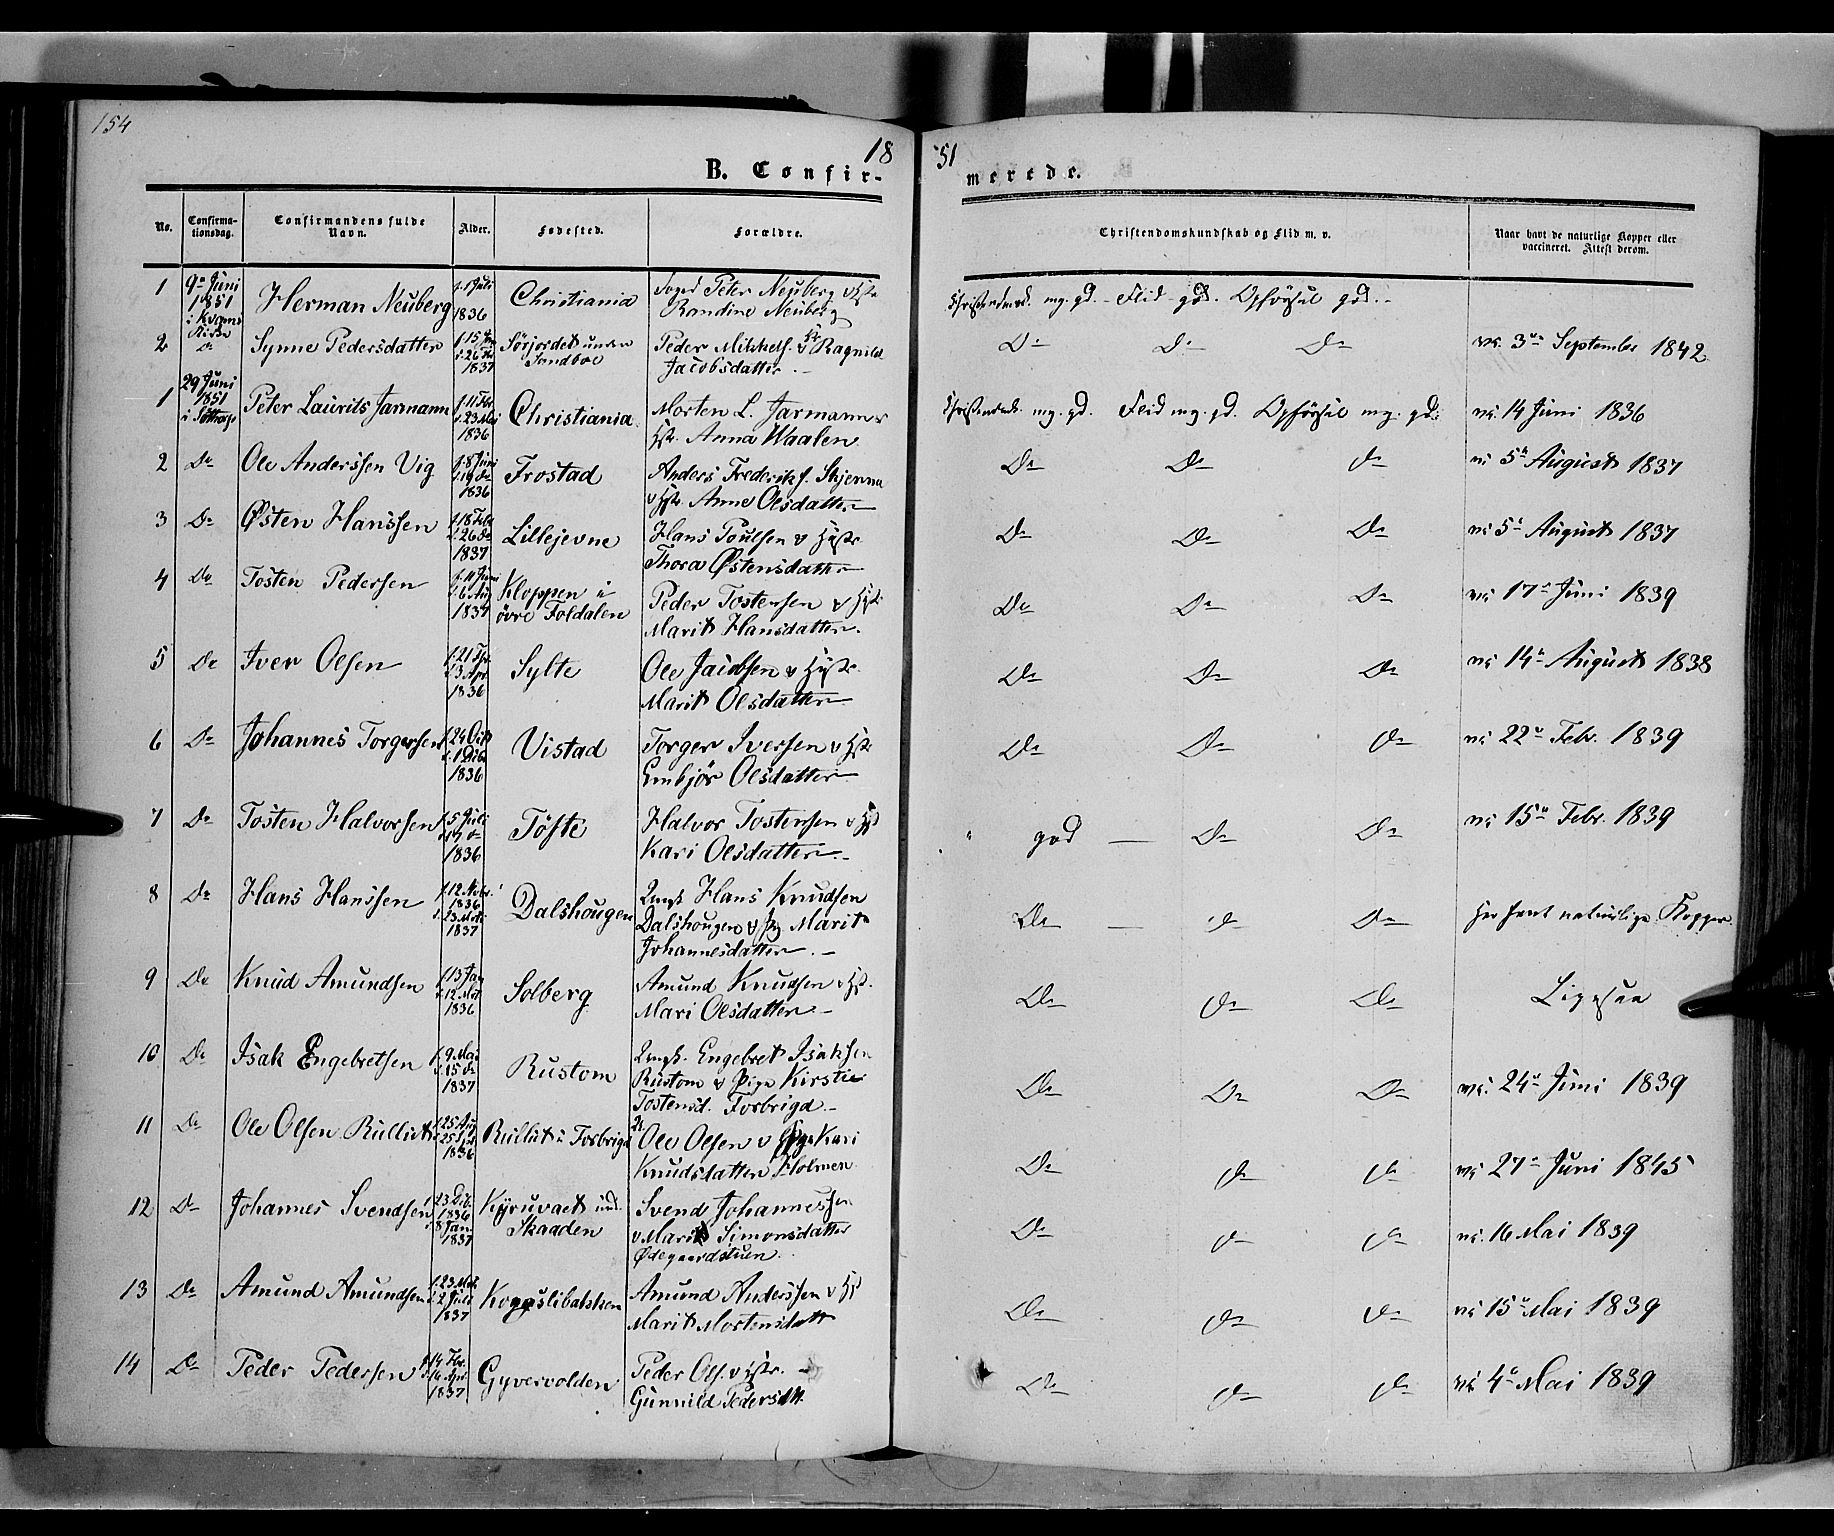 154
18
51
B. Confir-
merede.
No.
Confirma-
tionsdag.
Confirmandens fulde
Navn.
Alder.
Fødested.
Forældre.
Christendomskundskab og Flid m. v.
Naar havt de naturlige Kopper eller
vaccineret. Attest derom.
1 9de Juni 1851 i Kvams Kirke Herman Neuberg f. 1 Juli 1836 Christiania Peter Neuberg v Hstr
Randine Neuberg
mg. gd. - Flid gd. Opførsel gd. -
2 Do Synne Pedersdatter 1837 Sørjordet under
Sandboe
Peder Mikkels. v Ragnild
Jacobsdatter. -
Do Do Do va. 3de September 1842
1 29 Juni 1851 Peter Laurits Jarmann f. 11 Febr d. 23 Mai 1836 Christiania Morten L. Jarmann v
Hstr. Anna Waalen
mg. gd. Flid mg. gd. Opførsel mg. gd. va. 14 Juni 1836
2 Do Ole Anderssen Vig f. 8 Juni d. 19 do 1836 Frostad Anders Frederiks. Skjenna
v Hstr. Anne Olsdatter
Do Do do va 5te August 1837
3 Do Østen Hanssen f. 18 Febr d. 26 do 1837 Lillejevne Hans Poulsen v Hstr.
Thora Østensdatter
Do Do Do va 5te August 1837
4 Do Tosten Pedersen f. 11 Juni d. 6 Aug 1837 Kloppen i
øvre Foldalen
Peder Tostensen v Hstr
Marit Hansdatter.
Do Do Do va. 17de Juni 1839
5 Do Iver Olsen d. 3 Apr 1836 Sylte Ole Jacobsen v Hstr.
Marit Olsdatter
Do Do Do va 14de August 1838
6 Do Johannes Torgersen f. 24 Oct d. 1 Dcbr 1836 Vistad Torger Iversen v Hstr
Embjør Olsdatter
Do Do do va 22de Febr. 1839
7 Do Tosten Halvorsen f. 5 Juli d. 19 do 1836 Tøfte Halvor Tostensen v Hst
Kari Olsdatter. -
god - Do Do va 15de Febr. 1839
8 Do Hans Hanssen f. 12 Novbr. 1836 d. 23 Mrts 1837 Dalshougen Ungk. Hans Knudsen
Dalshougen v Pg Marit
Johannesdatter. -
Do - do Do naturlige Kopper.
9 Do Knud Amundsen f. 13 Jan d. 12 Mrt 1836 Solberg Amund Knudsen v Hst.
Mari Olsdatter. -
Do do Do Ligesaa
10 Do Isak Engebretsen f. 9 Mai d. 15 do 1837 Rustom Ungk. Engebret Isaksen
Rustom v Pige Kirstie
Tostensd. Forbrigd. -
Do Do Do va. 24de Juni 1839
11 Do Ole Olsen Rullut f. 25 Aug 1836 Rullut i Forbrigd Ole Olsen v Pige Kari
Knudsdatter Holmen
Do do do va 27de Juni 1845
12 Do Johannes Svendsen f. 23 Dcb. 1836 d. 8 Jan 1837 und.
Skaaden
Svend Johannessen
v Marit Simonsdatter
Ødegaardstuen.
Do do do va. 16 Mai 1839
13 Do Amund Amundsen f. 23 Mai d. 2 Juli 1837 Amund Anderssen v Hst
Marit Mortensdatt
Do do do va 15de Mai 1839
14 Do Peder Pedersen f. 14 Fbr. d. 16 Apr 1837 Gyvervolden Peder Ols. v Hstr. -
Gunnild Pedersdtt.
Do do do va 4de Mai 1839